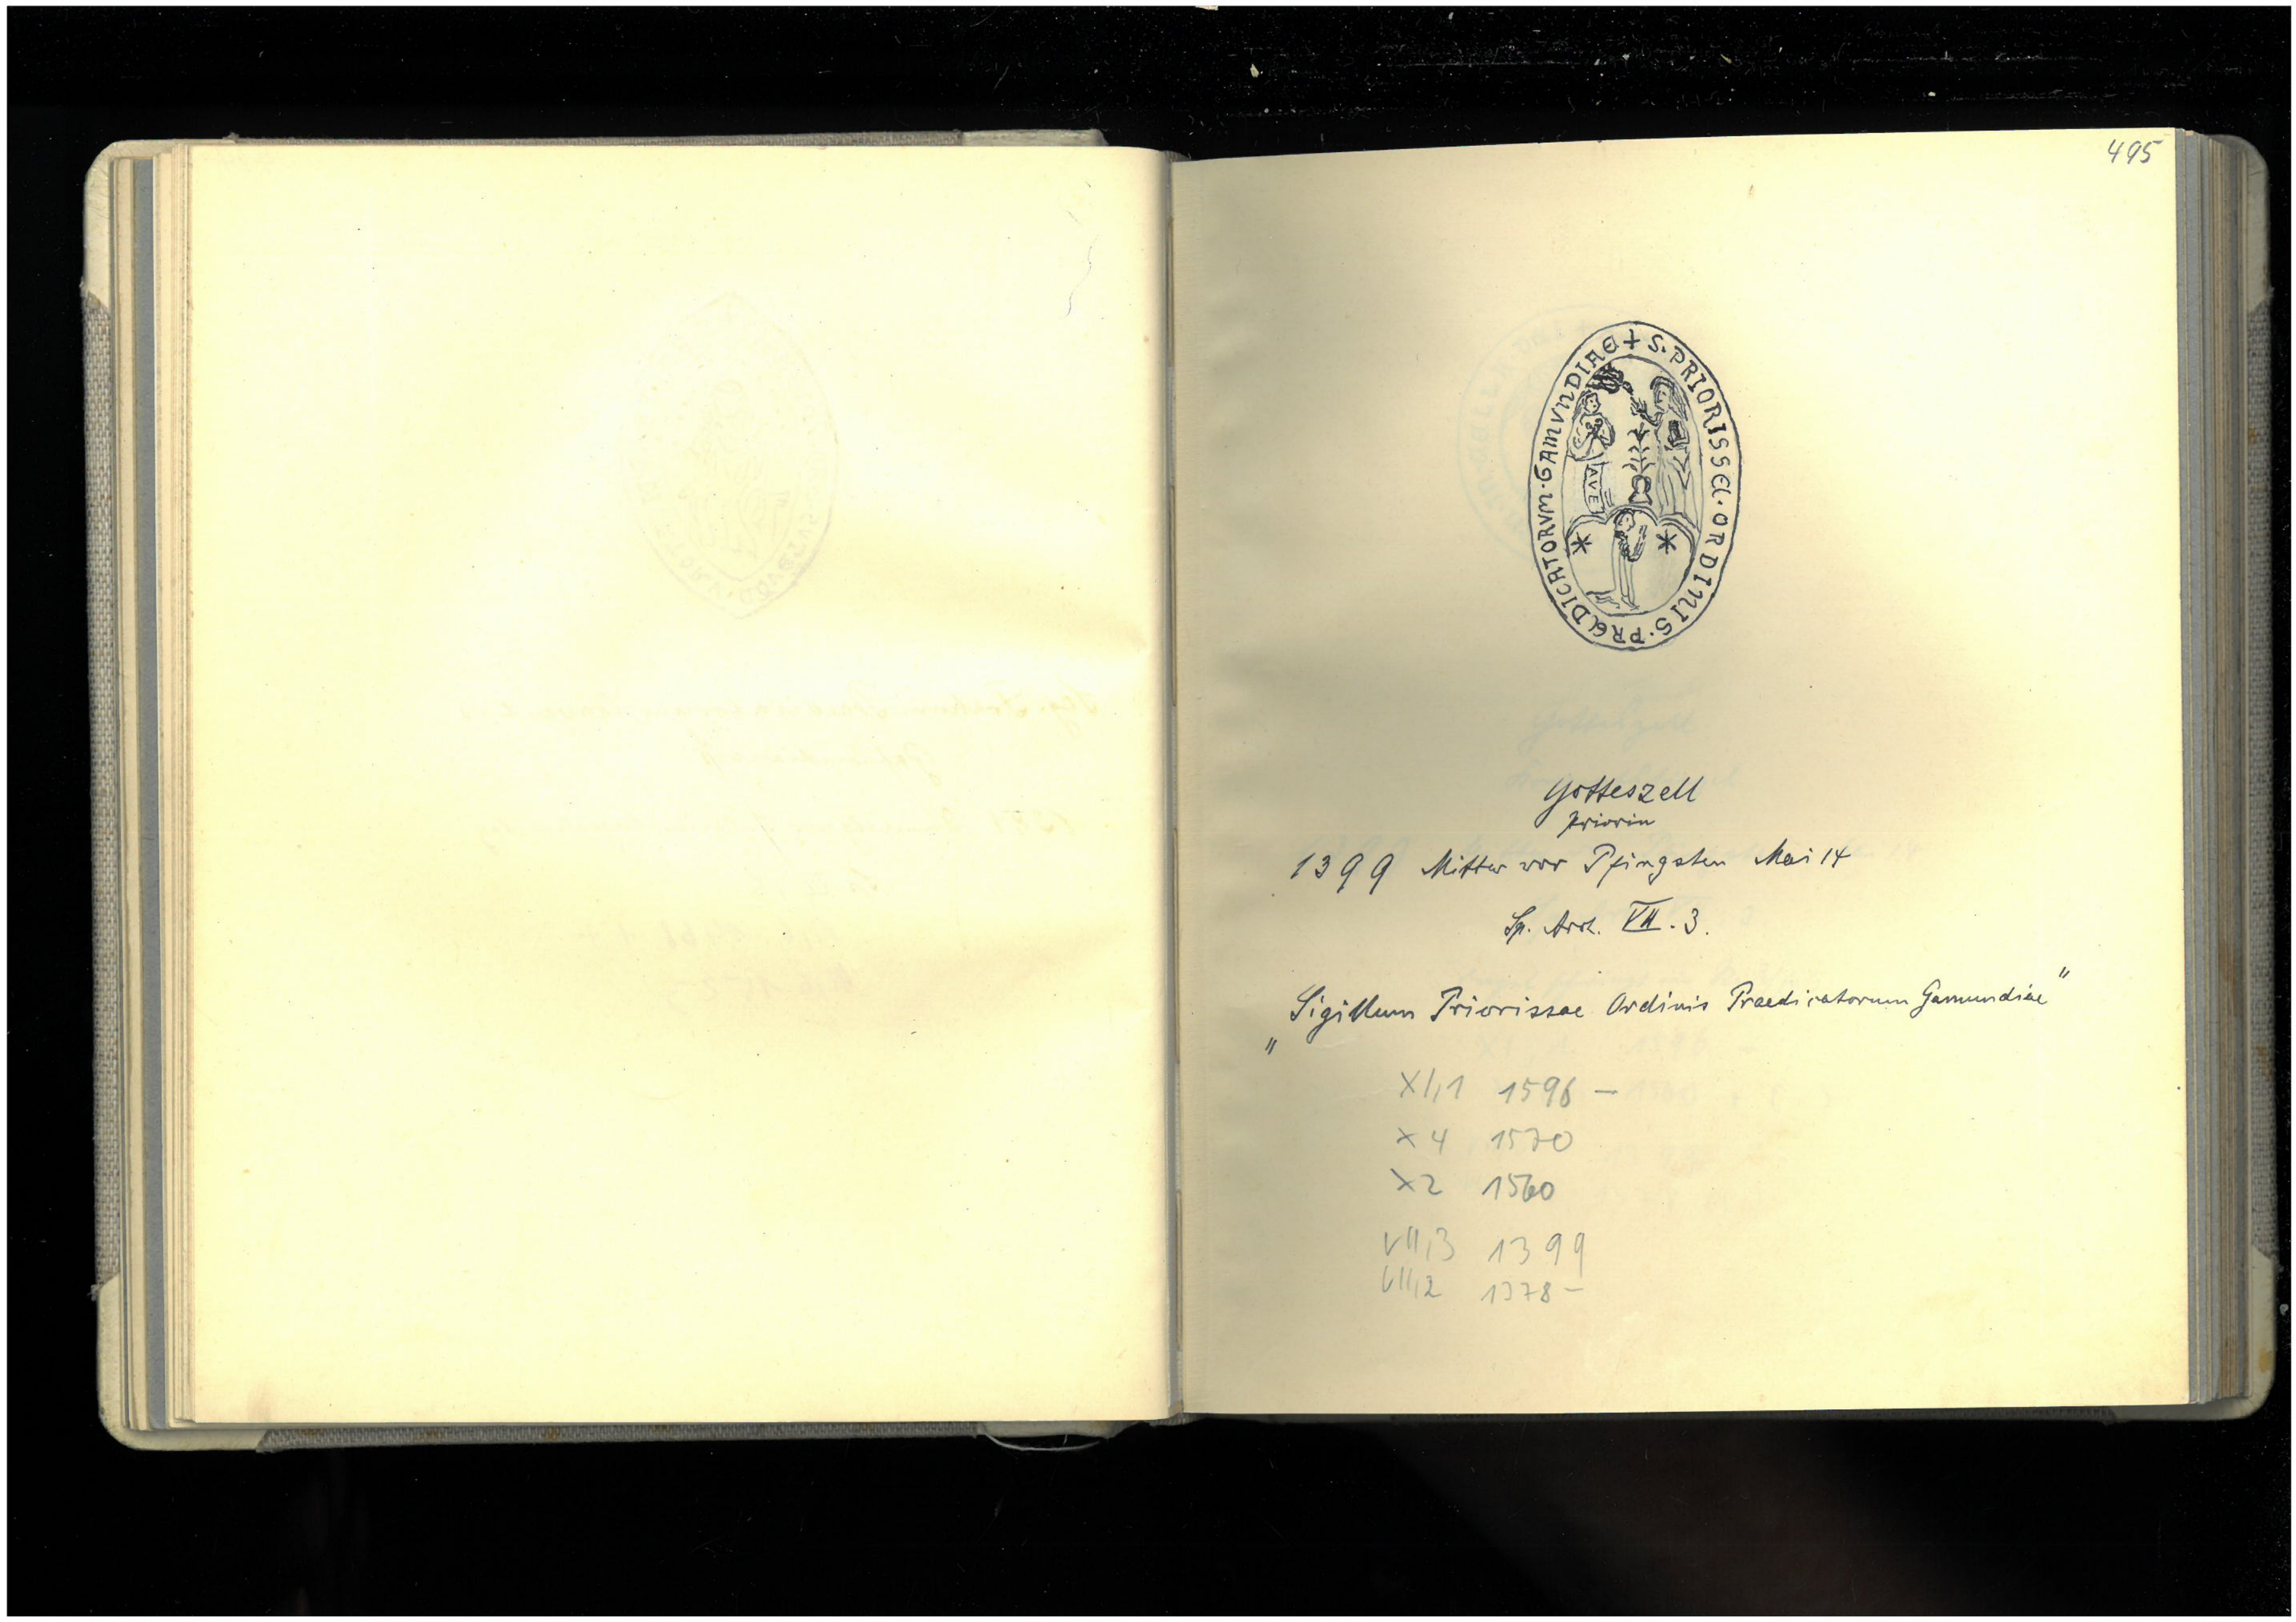 495
+ S. PRIORISSE. ORDINIS. PREDICATORVM. GAMVNDIAE
AVE
Gotteszell
Priorin
1399 Mittw vor Pfingsten Mai 14
Sp. Arch. VII. 3.
„Sigillum Priorissae Ordinis Praedicatorum Gamundiae"
XI,1 1596 –
X 4 1570
X 2 1560
VII,3 1399
VII,2 1378 –